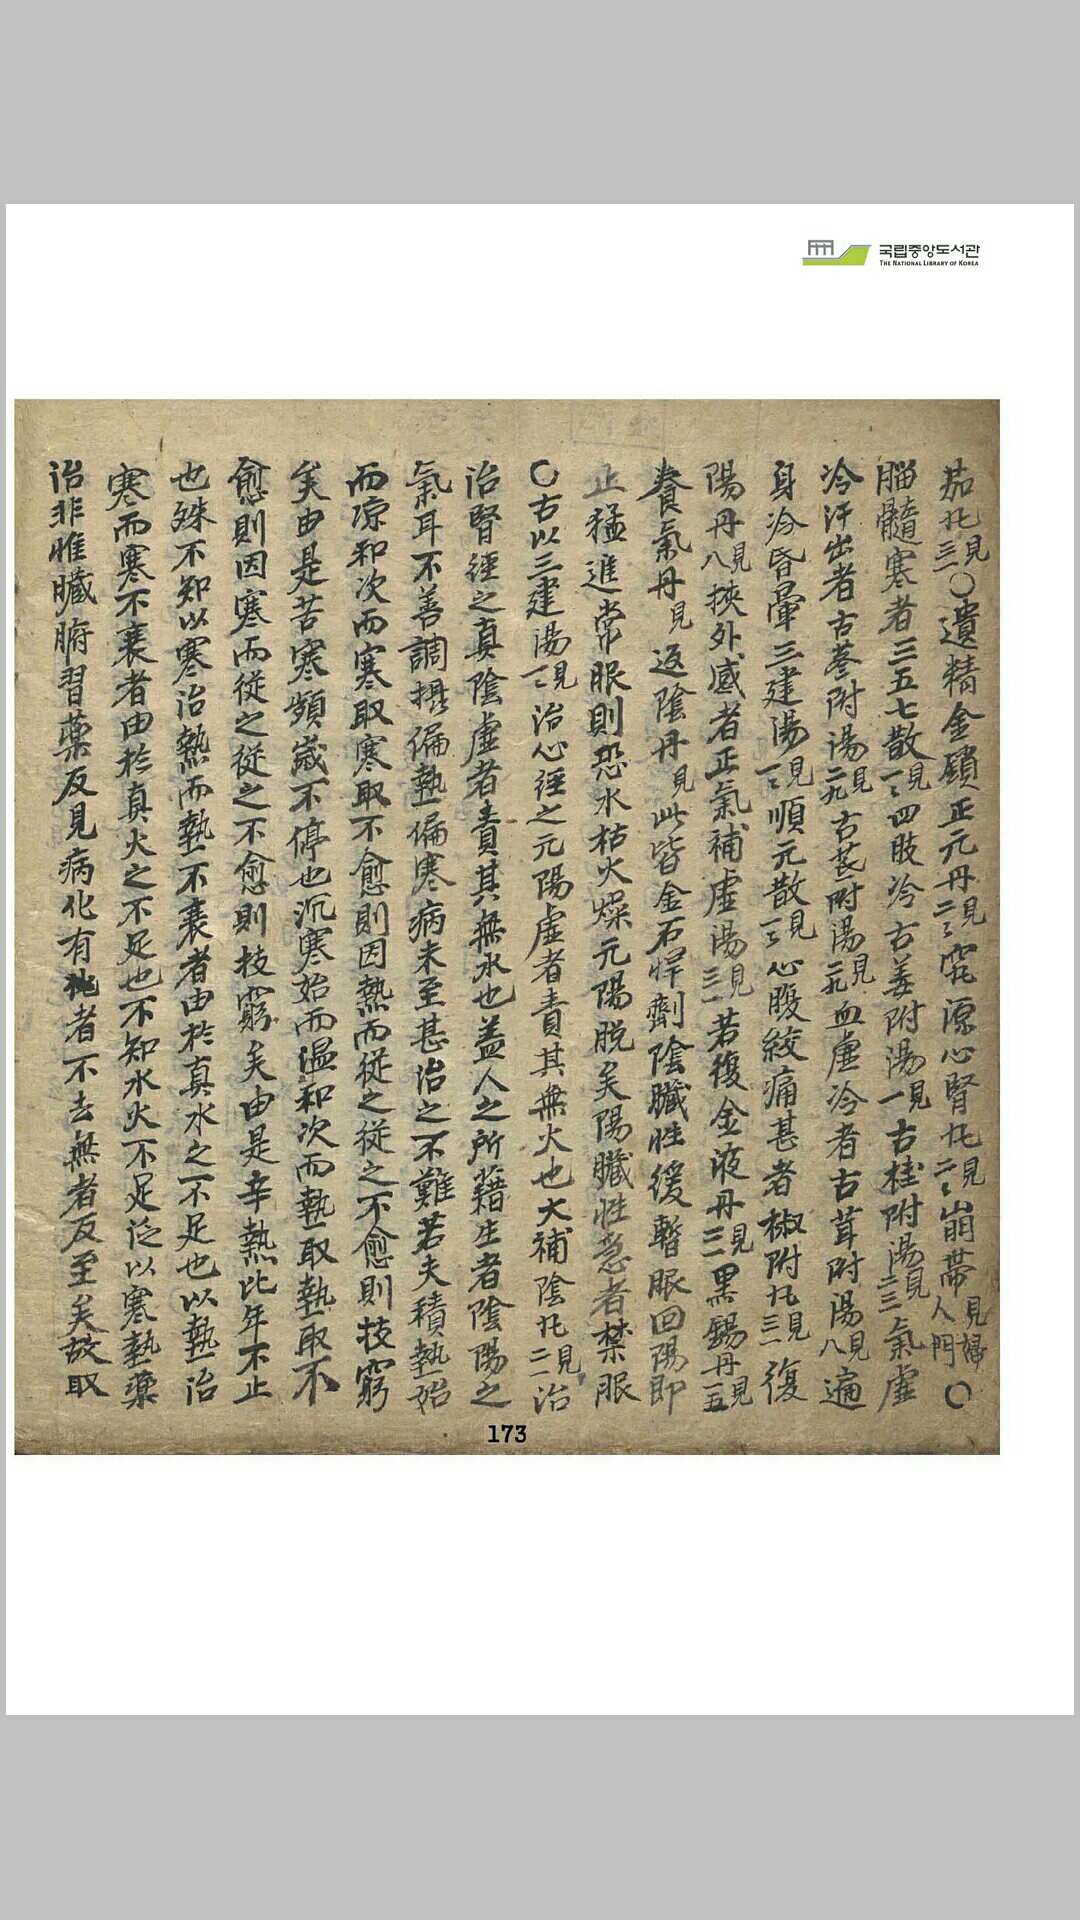 국립중앙도서관
THE NATIONAL LIBRARY OF KOREA
茄丸見三○遺精金鎖正元丹見二究源心腎丸見二崩帶見婦人門○
腦髓寒者三五七散見一四肢冷古姜附湯見一古桂附湯見三氣虛
冷汗出者古芪附湯見古茸附湯見八遍
身冷昏暈三建湯見一順元散見三心腹絞痛甚者椒附丸見三復
陽丹見八挾外感者正氣補虛湯見三若復金液丹見三黑錫丹見五
養氣丹見返陰丹見此皆金石悍劑陰臟性緩暫服回陽即
止猛進常服則恐水枯火燥元陽脫矣陽臟性急者禁服
○古以三建湯見一治心經之元陽虛者責其無火也大補陰丸見二治
治腎經之真陰虛者責其無水也盖人之所藉生者陰陽之
氣耳不善調攝偏熱偏寒病未至甚治之不難若夫積熱始
而凉和次而寒取寒取不愈則因熱而從之從之不愈則技窮
矣由是苦寒頻歲不停也沉寒始而溫和次而熱取熱取不
愈則因寒而從之從之不愈則技窮矣由是辛熱比年不止
也殊不知以寒治熱而熱不衰者由於真水之不足也以熱治
寒而寒不衰者由於真火之不足也不知水火不足泛以寒熱藥
治非惟臟腑習藥反見病化有者不去無者反至矣故取
173